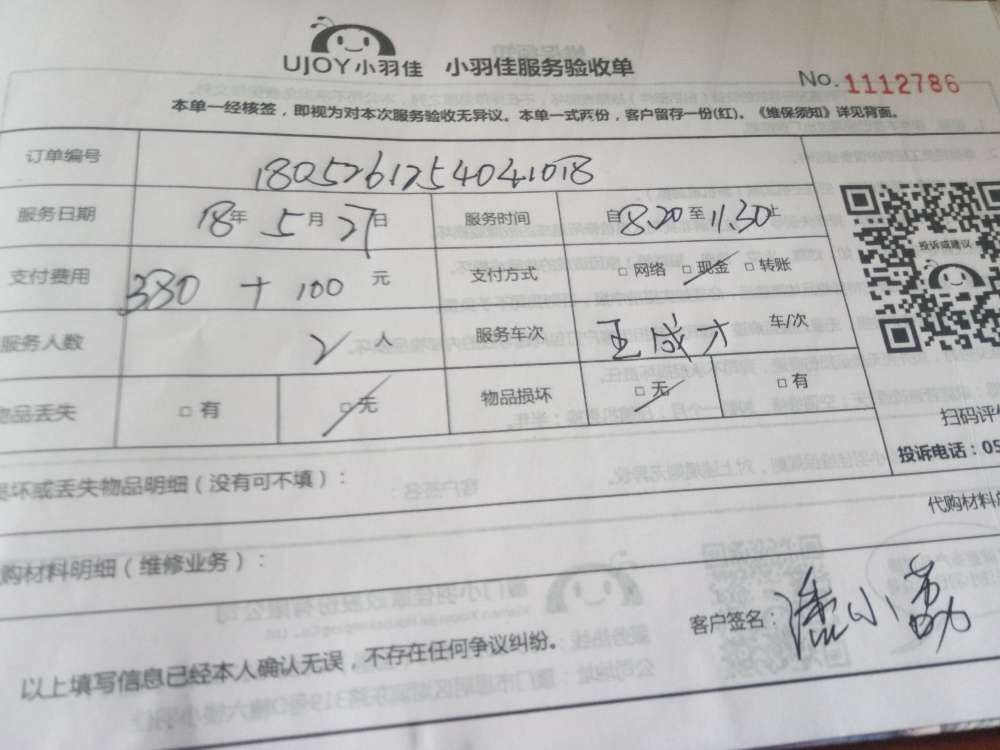 UJOY小羽佳 小羽佳服务验收单
No.1112786
本单一经核签，即视为对本次服务验收无异议。本单一式两份，客户留存一份(红)。《维保须知》详见背面。
订单编号 1805261254041018
服务日期 18年 5月 27日 服务时间 自8.20至11.30止
投诉或建议
支付费用 380 + 100 元 支付方式 □网络 □现金 □转账
服务人数 2 人 服务车次 王成才 车/次
物品丢失 □有 □无 物品损坏 □无 □有
扫码评
投诉电话：05
坏或丢失物品明细（没有可不填）：
代购材料
购材料明细（维修业务）：
客户签名：潘小
以上填写信息已经本人确认无误，不存在任何争议纠纷。